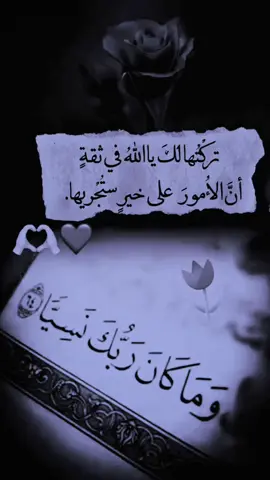 تركتُها لكَ يا اللهُ في ثقةٍ
أنَّ الأمورَ على خيرٍ ستُجريها.
وَمَا كَانَ رَبُّكَ نَسِيًّا ٦٤